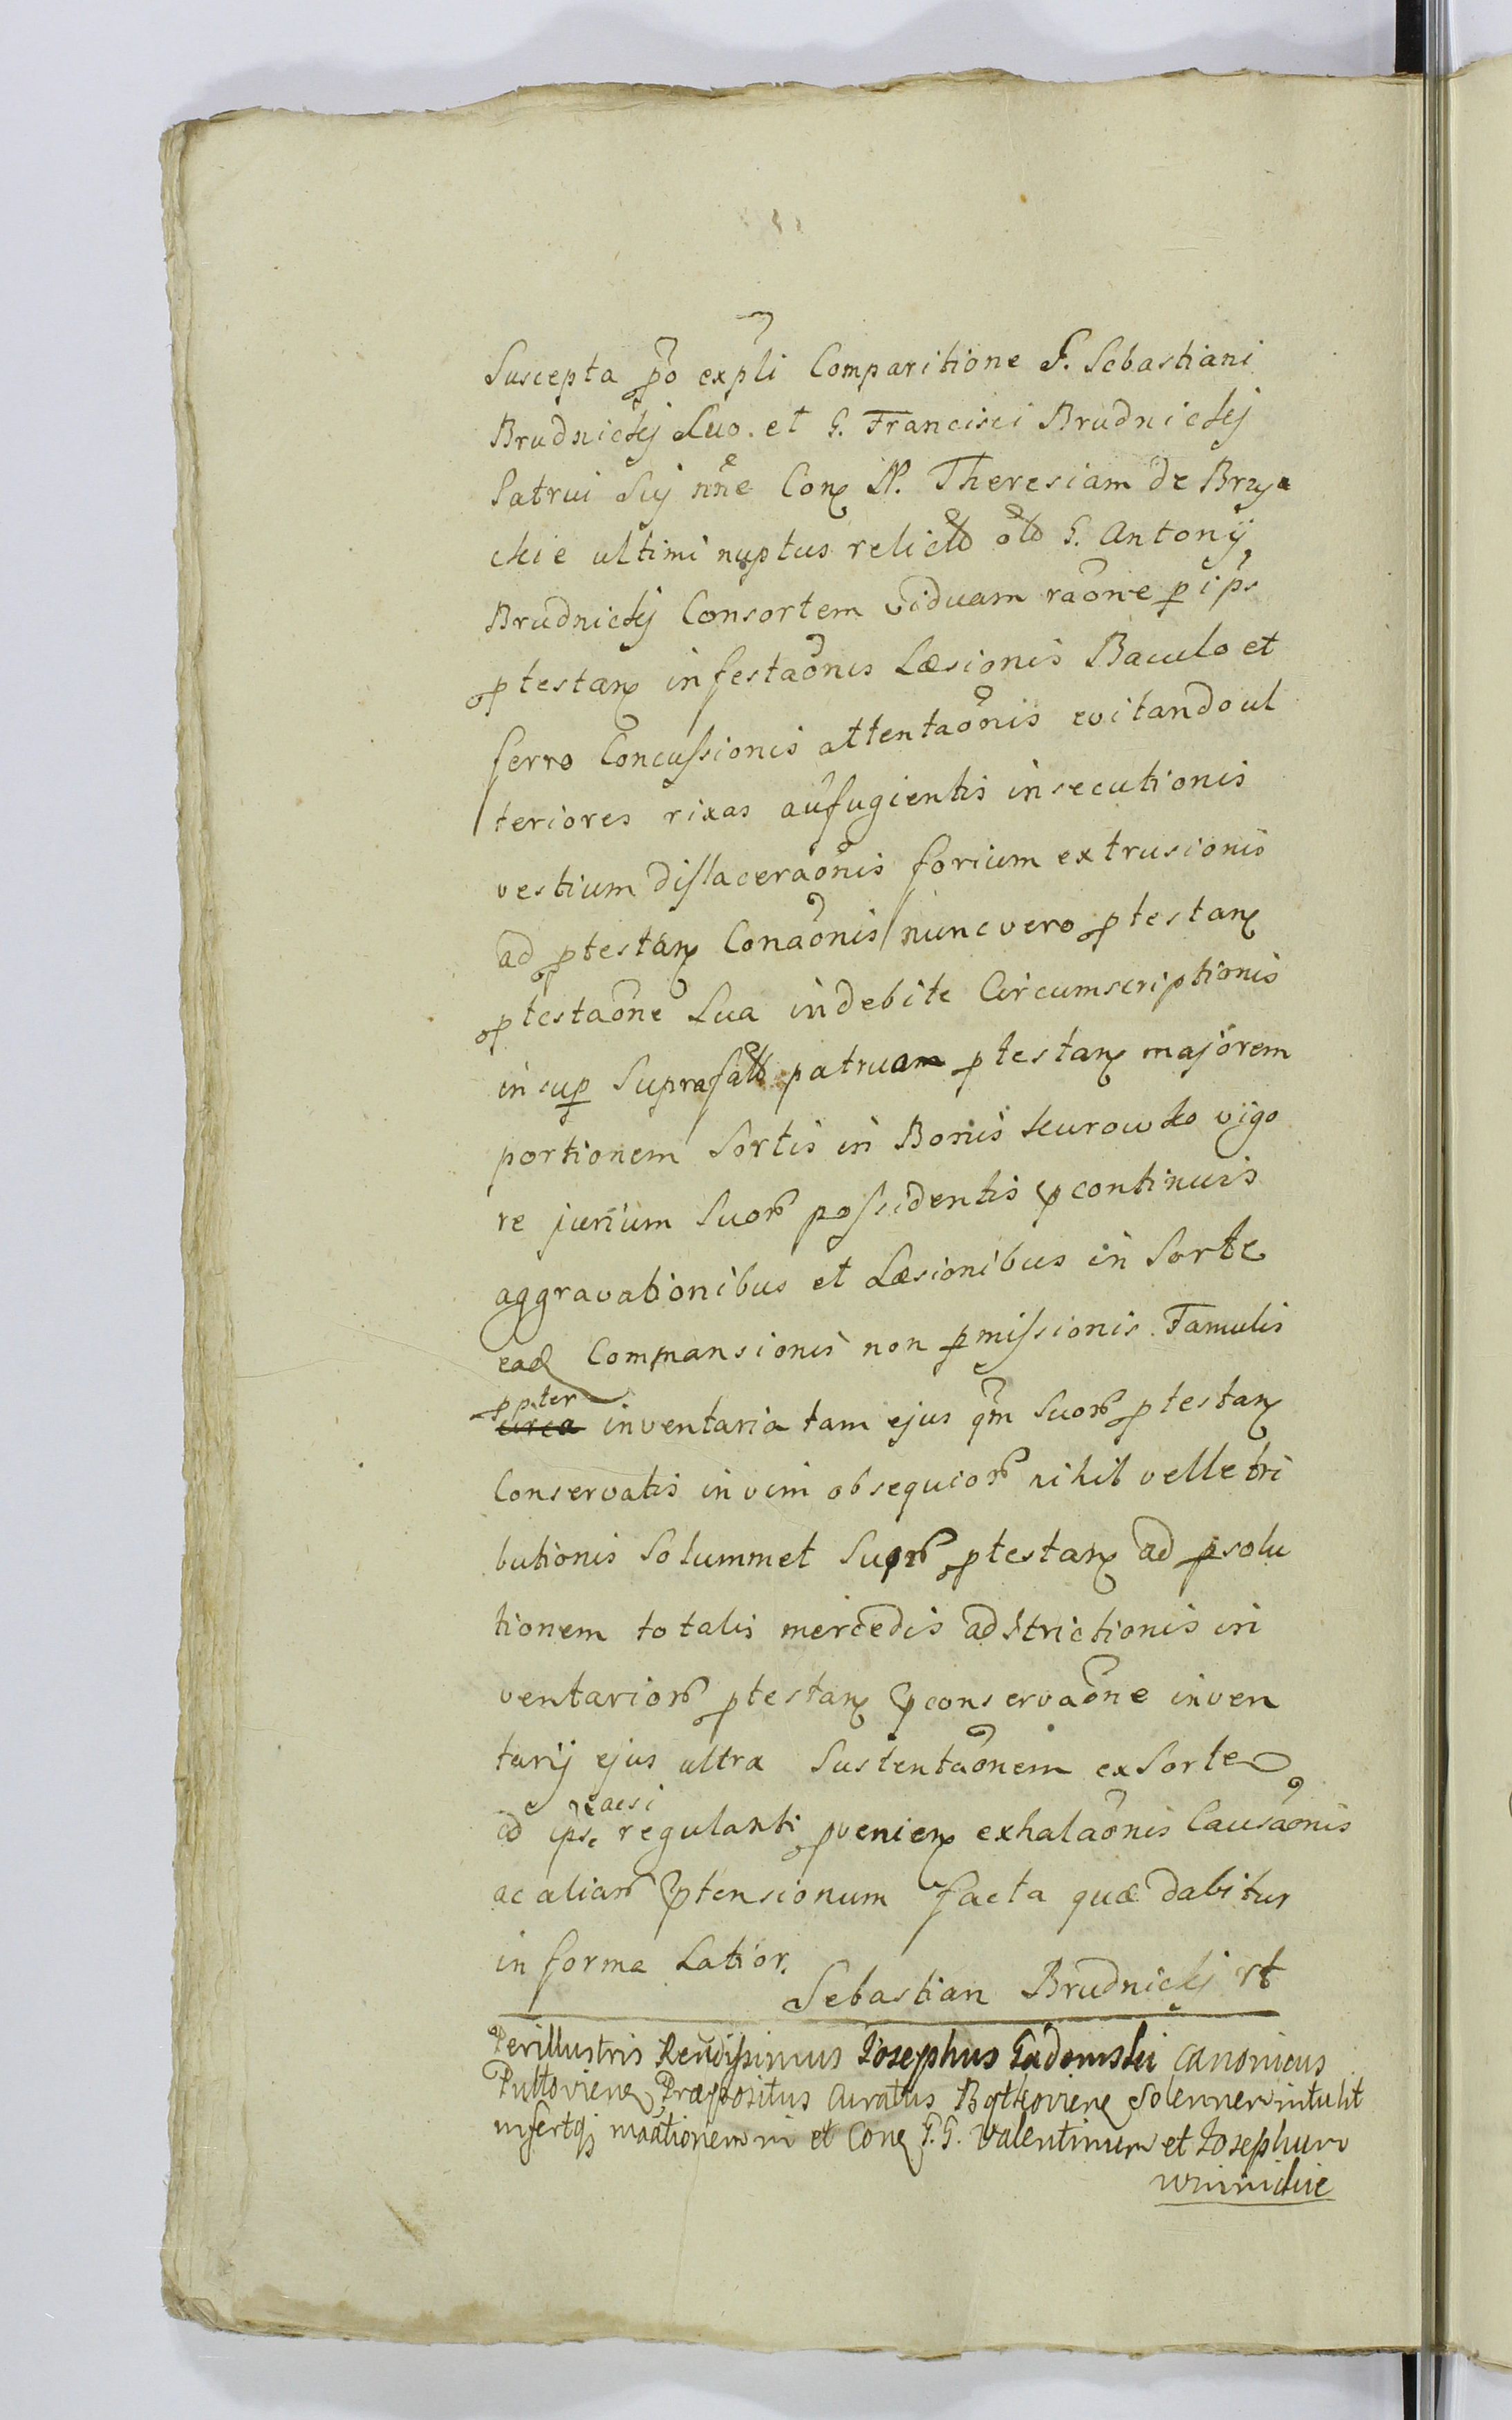 Suscepta po expli Comparitione G. Sebastiani
Brudnickij Suo. et G. Francisci Brudnickij
Patrui Sui nne Con N. Theresiam de Brzy
ckie ultimi nuptus relicta olo G. Antonij
Brudnickij Consortem viduam raone p ips
ptestan infestaonis Læsionis Baculo et
ferro Concussionis attentaonis evitando ul
teriores rixas aufugientis insecutionis
vestium dislaceraonis forium extrusionis
ad ptestan Conaonis nunc vero ptestan
ptestaone Sua indebite Circumscriptionis
insup Suprafato patruam ptestan majorem
portionem Sortis in Bonis Kurowko vigo
re jurium Suor possidentis p continuis
aggravationibus et Læsionibus in Sorte
ead Commansionis non pmissionis Famulis
ppter
circa inventaria tam ejus qm Suor ptestan
Conservatis in vim obsequior nihil velle tri
butionis Solummet Suor ptestan ad psolu
tionem totalis mercedis adstrictionis in
ventarior ptestan p conservaone inven
tarij ejus ultra Sustentaonem ex Sorte
ad ipse regulanti pvenien exhalaonis Causaonis
ac aliar ptensionum facta quæ dabitur
in forma Latior.
Sebastian Brudnickij
Perillustris Rendissimus Josephus Gadomski Canonicus
Pultovien Præpositus Curatus solenner intulit
infertq et Con G. G. Valentinum et Josephum